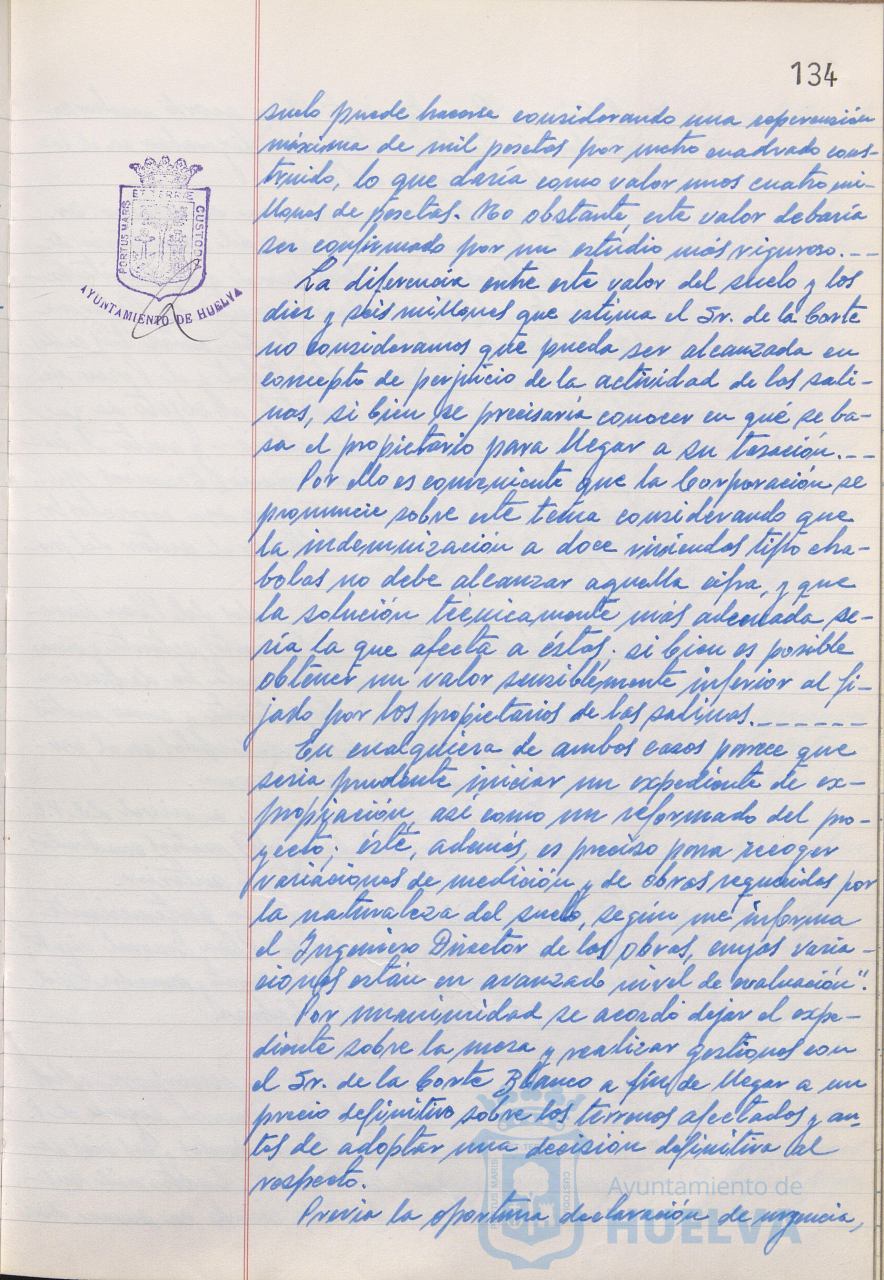 134
suelo puede hacerse considerando una repercusión
máxima de mil pesetas por metro cuadrado cons-
truido, lo que daría como valor unos cuatro mi-
llones de pesetas. No obstante, este valor debería
ser confirmado por un estudio más riguroso.---
La diferencia entre este valor del suelo y los
diez y seis millones que estima el Sr. de la Corte
no consideramos que pueda ser alcanzada en
concepto de perjuicio de la actividad de las sali-
nas, si bien se precisaría conocer en qué se ba-
sa el propietario para llegar a su tasación.---
Por ello es conveniente que la Corporación se
pronuncie sobre este tema considerando que
la indemnización a doce viviendas tipo cha-
bolas no debe alcanzar aquella cifra, y que
la solución técnicamente más adecuada se-
ría la que afecta a éstas; si bien es posible
obtener un valor sensiblemente inferior al fi-
jado por los propietarios de las salinas.------
En cualquiera de ambos casos parece que
sería prudente iniciar un expediente de ex-
propiación, así como un reformado del pro-
yecto; éste, además, es preciso para recoger
variaciones de medición y de obras requeridas por
la naturaleza del suelo, según me informa
el Ingeniero Director de las obras, cuyas varia-
ciones están en avanzado nivel de evaluación".
Por unanimidad se acordó dejar el expe-
diente sobre la mesa y realizar gestiones con
el Sr. de la Corte Blanco a fin de llegar a un
precio definitivo sobre los terrenos afectados y an-
tes de adoptar una decisión definitiva al
respecto.
Previa la oportuna declaración de urgencia,
PORTUS MARIS ET TERRE CUSTODIA
AYUNTAMIENTO DE HUELVA
Ayuntamiento de
HUELVA